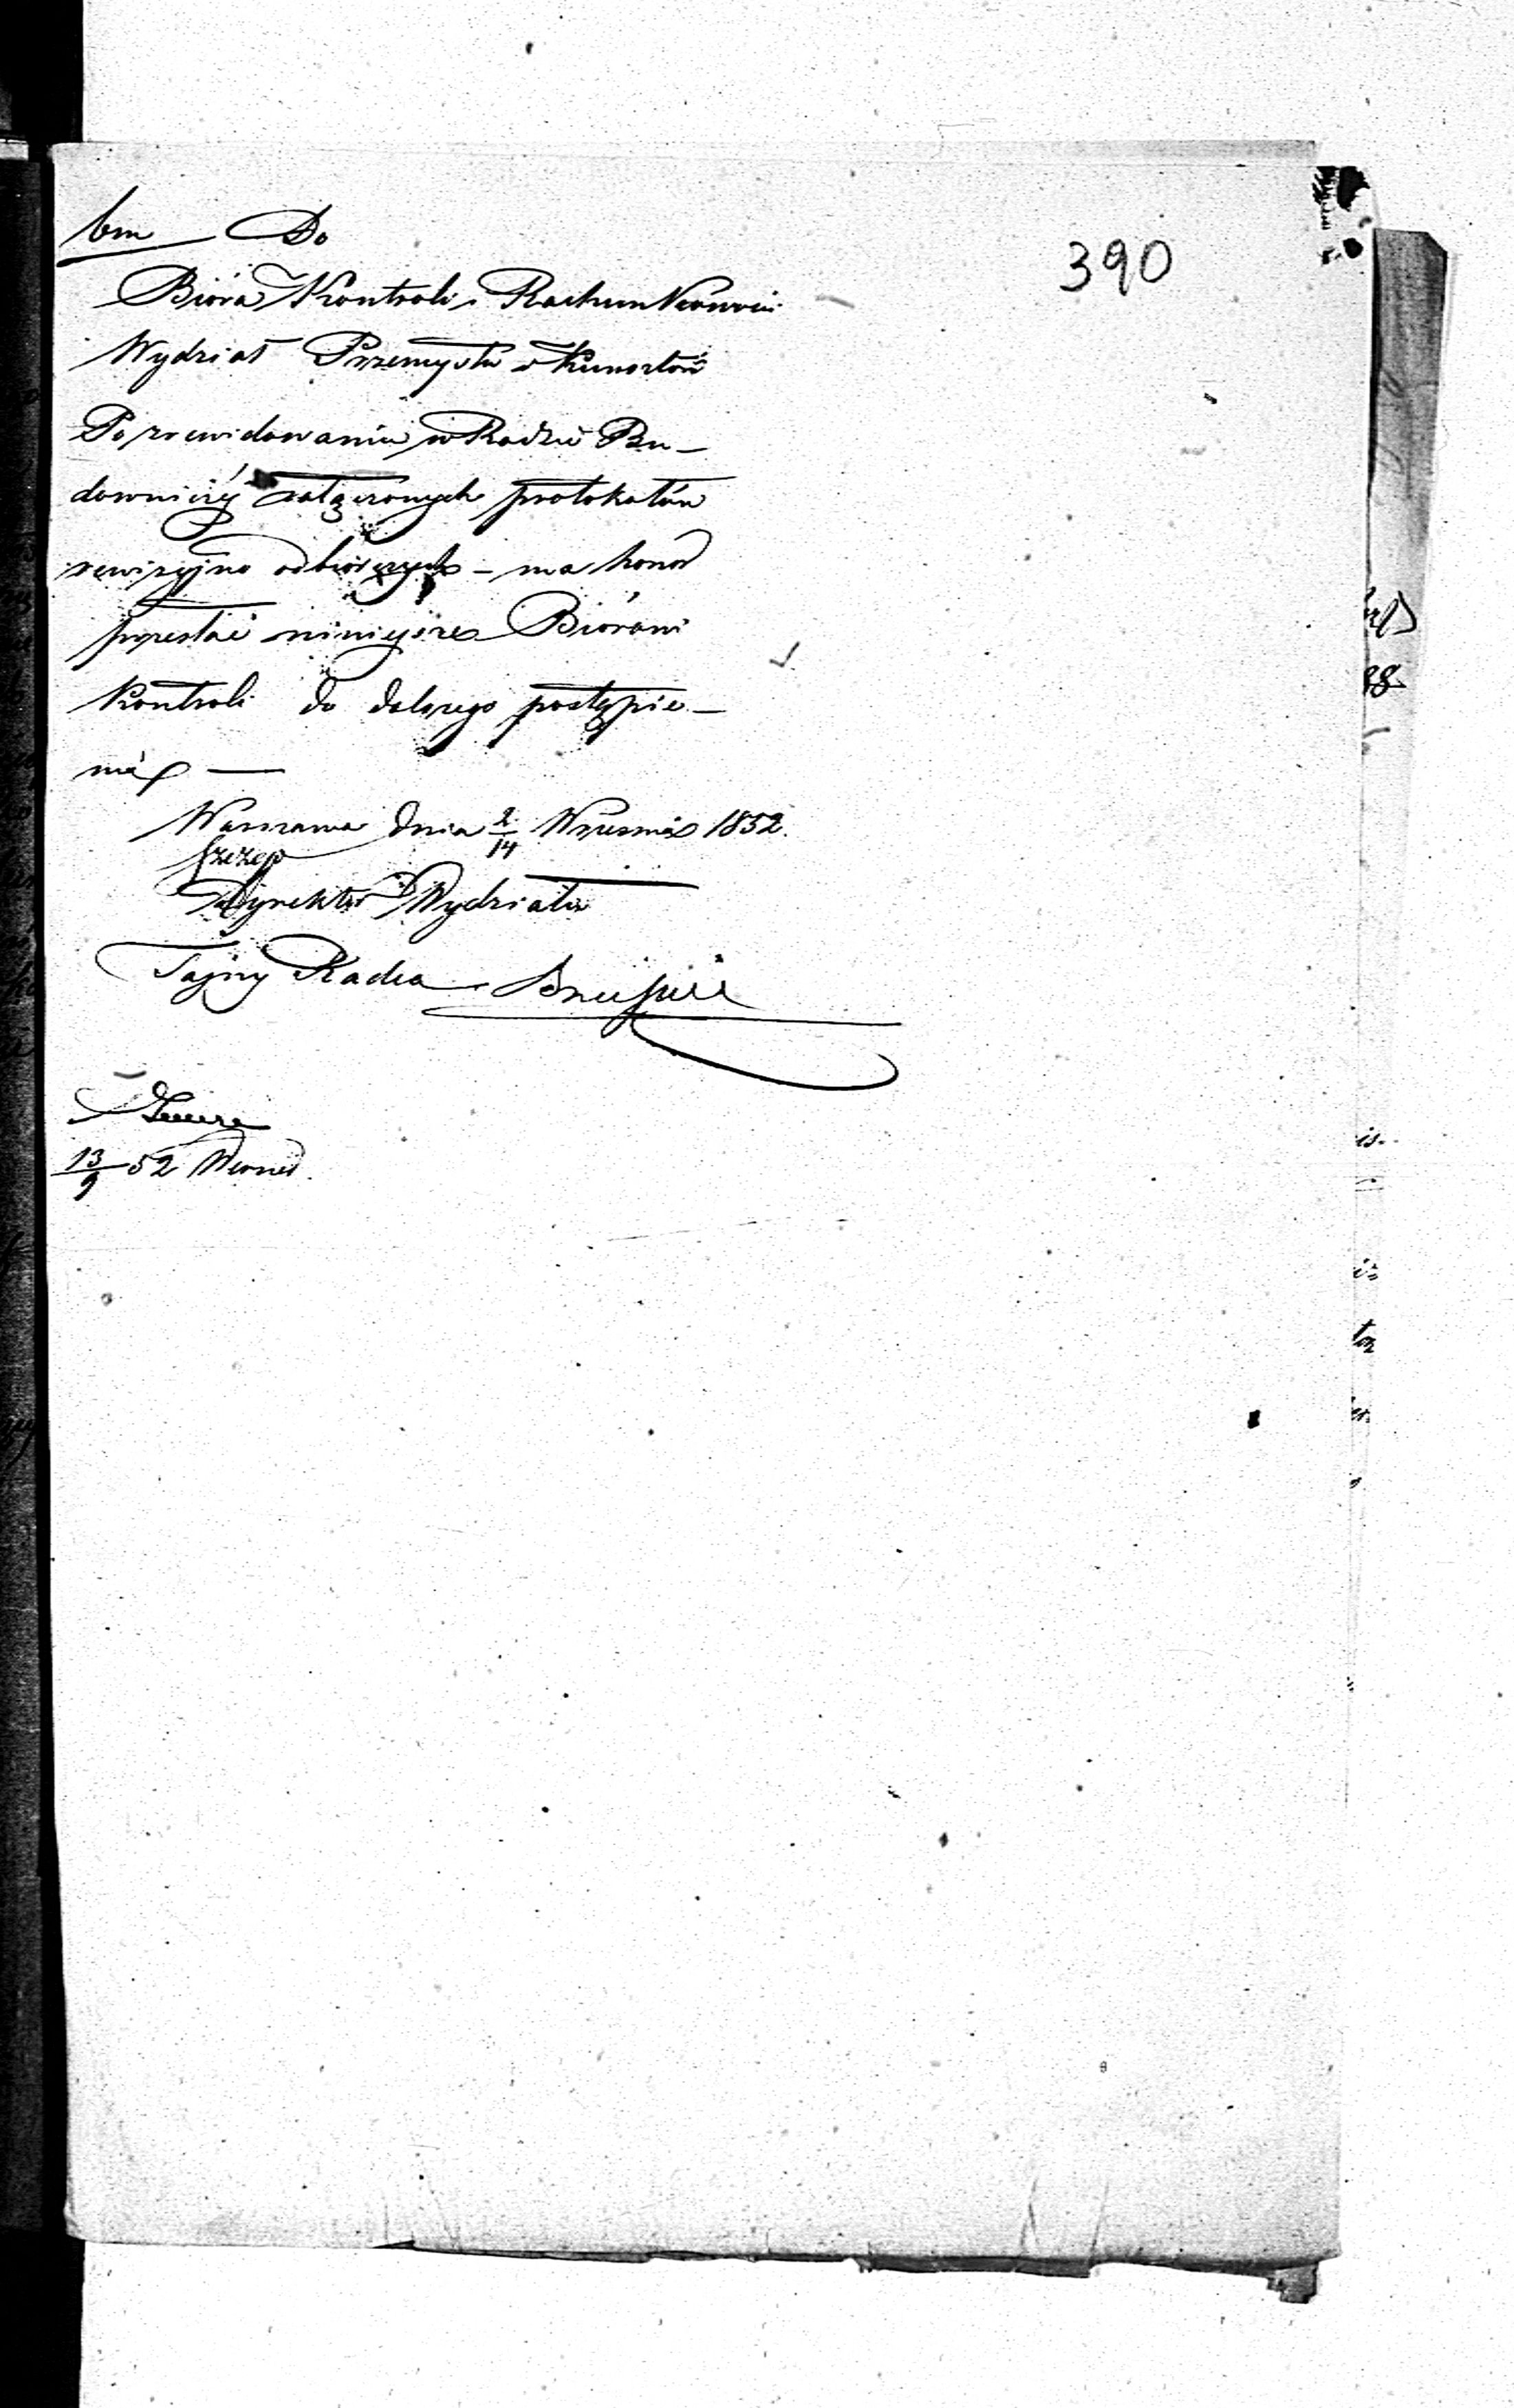 bm Do
390
Bióra Kontroli i Rachunkowości
Wydział Przemysłu i Kunsztów
Po zrewidowaniu w Radzie Bu-
downiczéj załączonych protokułów
rewizyjno odbiorczych – ma honor
przesłać niniejsze Biórowi
Kontroli do dalszego postępie-
nia
Warszawa dnia 2/14 Września 1852.
Dyrektor Wydziału
Tajny Radca
13/9 52 Werner